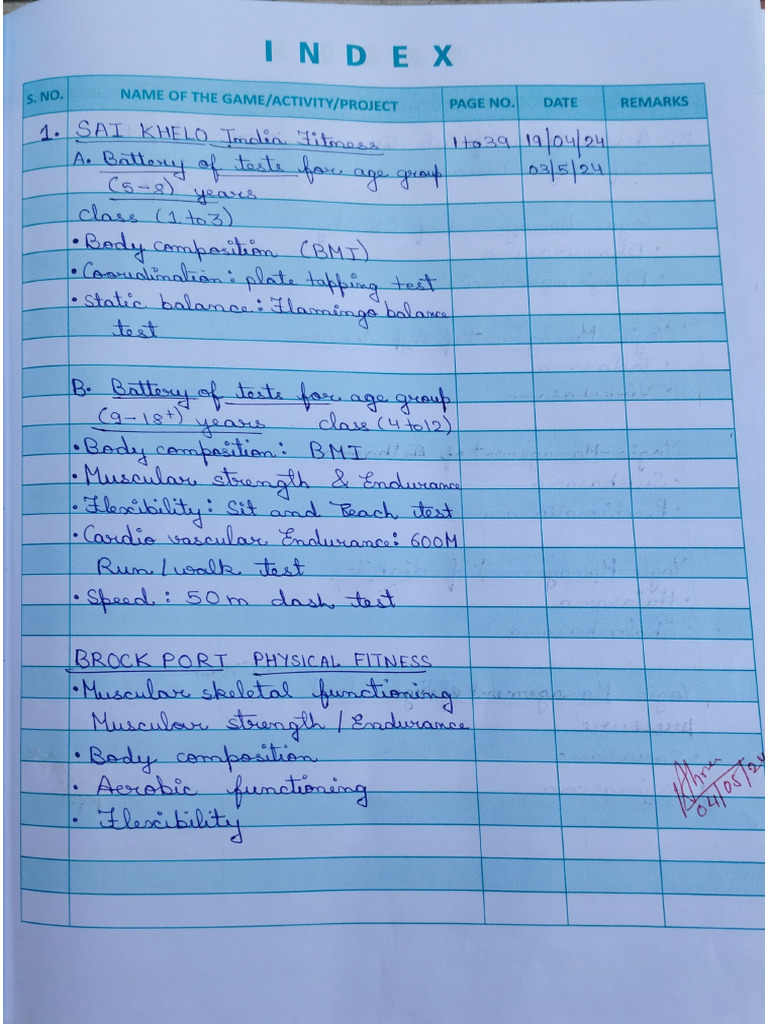 INDEX
S. NO. NAME OF THE GAME/ACTIVITY/PROJECT PAGE NO. DATE REMARKS
1. SAI KHELO India Fitness 1 to 39 19/04/24
A. Battery of tests for age group 03/5/24
(5-8) years
class (1 to 3)
• Body composition (BMI)
• Coordination: plate tapping test
• Static balance: Flamingo balance
test
B. Battery of tests for age group
(9-18+) years class (4 to 12)
• Body composition: BMI
• Muscular strength & Endurance
• Flexibility: Sit and Reach test
• Cardio vascular Endurance: 600M
Run/walk test
• Speed: 50m dash test
BROCK PORT PHYSICAL FITNESS
• Muscular skeletal functioning
Muscular strength/Endurance
• Body composition
• Aerobic functioning
• Flexibility
04/05/24